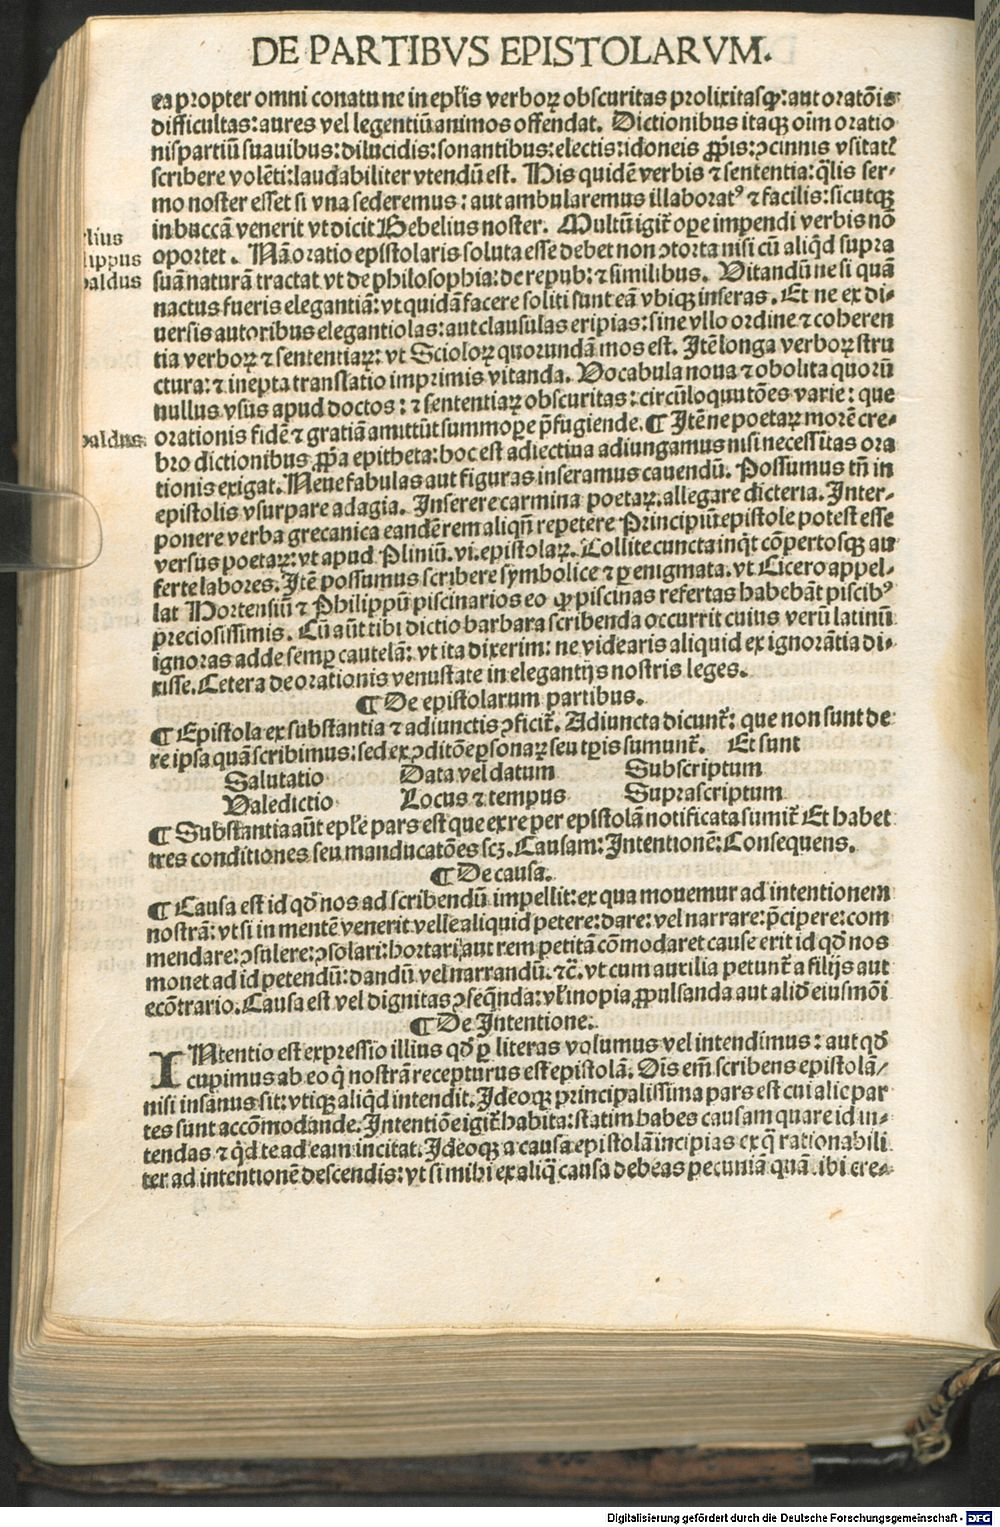 DE PARTIBVS EPISTOLARVM.
ea propter omni conatu ne in epłis verboꝝ obscuritas prolixitasqꝫ: aut oratōis
difficultas: aures vel legentiū animos offendat. Dictionibus itaqꝫ oīm oratio
nis partiū suauibus: dilucidis: sonantibus: electis: idoneis ꝓpīs: ↄcinnis vsitatꝭ
scribere volēti: laudabiliter vtendū est. His quidē verbis ⁊ sententia: q̄lis ser-
mo noster esset si vna sederemus: aut ambularemus illaboratꝰ ⁊ facilis: sicutqꝫ
in buccā venerit vt dicit Hebelius noster. Multū igit̄ oꝑe impendi verbis nō
oportet. Nā oratio epistolaris soluta esse debet non ↄtorta nisi cū aliq̄d supra
suā naturā tractat vt de philosophia: de repub: ⁊ similibus. Vitandū ne si quā
nactus fueris elegantiā: vt quidā facere soliti sunt eā vbiqꝫ inseras. Et ne ex di-
uersis autoribus elegantiolas: aut clausulas eripias: sine vllo ordine ⁊ coheren
tia verboꝝ ⁊ sententiaꝝ: vt Scioloꝝ quorundā mos est. Itē longa verboꝝ stru
ctura: ⁊ inepta translatio imprimis vitanda. Vocabula noua ⁊ obolita quorū
nullus vsus apud doctos: ⁊ sententiaꝝ obscuritas: circūloquutōes varie: que
orationis fidē ⁊ gratiā amittūt summoꝑe p̄fugiende. ¶ Itē ne poetaꝝ morē cre-
bro dictionibus ꝓpa epitheta: hoc est adiectiua adiungamus nisi necessitas ora
tionis exigat. Neue fabulas aut figuras inseramus cauendū. Possumus tn̄ in
epistolis vsurpare adagia. Inserere carmina poetaꝝ: allegare dicteria. Inter-
ponere verba grecanica eandē rem aliqn̄ repetere Principiū epistole potest esse
versus poetaꝝ: vt apud Pliniū. vi. epistolaꝝ. Tollite cuncta inq̄t cōpertosqꝫ au
ferte labores. Itē possumus scribere symbolice ⁊ ꝑ enigmata. vt Cicero appel-
lat Hortensiū ⁊ Philippū piscinarios eo ꝙ piscinas refertas habebāt piscibꝰ
preciosissimis. Cū aūt tibi dictio barbara scribenda occurrit cuius verū latinū
ignoras adde semꝑ cautelā: vt ita dixerim: ne videaris aliquid ex ignorātia di-
xisse. Cetera de orationis venustate in elegantijs nostris leges.
¶ De epistolarum partibus.
¶ Epistola ex substantia ⁊ adiunctis ↄficit̄. Adiuncta dicunt̄: que non sunt de
re ipsa quā scribimus: sed ex ↄditōe ꝑsonaꝝ seu tꝑis sumunt̄. Et sunt
Salutatio Data vel datum Subscriptum
Valedictio Locus ⁊ tempus Suprascriptum
¶ Substantia aūt epłe pars est que ex re per epistolā notificata sumit̄ Et habet
tres conditiones seu manducatōes scꝫ. Causam: Intentionē: Consequens.
¶ De causa.
¶ Causa est id qd̄ nos ad scribendū impellit: ex qua mouemur ad intentionem
nostrā: vt si in mentē venerit velle aliquid petere: dare: vel narrare: p̄cipere: com
mendare: ↄsulere: ↄsolari: hortari, aut rem petitā cōmodaret cause erit id qd̄ nos
monet ad id petendū: dandū vel narrandū. ⁊c̄. vt cum auxilia petunt̄ a filijs aut
ecōtrario. Causa est vel dignitas ↄseq̄nda: vł inopia ꝓpulsanda aut aliđ eiusmōi
¶ De Intentione.
INtentio est expressio illius qd̄ ꝑ literas volumus vel intendimus: aut qd̄
cupimus ab eo q̇ nostrā recepturus est epistolā. Oīs em̄ scribens epistolā/
nisi insanus sit: vtiqꝫ aliq̄d intendit. Ideoqꝫ principalissima pars est cui alie par
tes sunt accōmodande. Intentiōe igit̄ habita: statim habes causam quare id in-
tendas ⁊ q̇d te ad eam incitat. Ideoqꝫ a causa epistolā incipias ex q̄ rationabili
ter ad intentionē descendis: vt si mihi ex aliq̄ causa debeas pecuniā quā. ibi cre-
lius
lippus
baldus
baldus
Digitalisierung gefördert durch die Deutsche Forschungsgemeinschaft - DFG